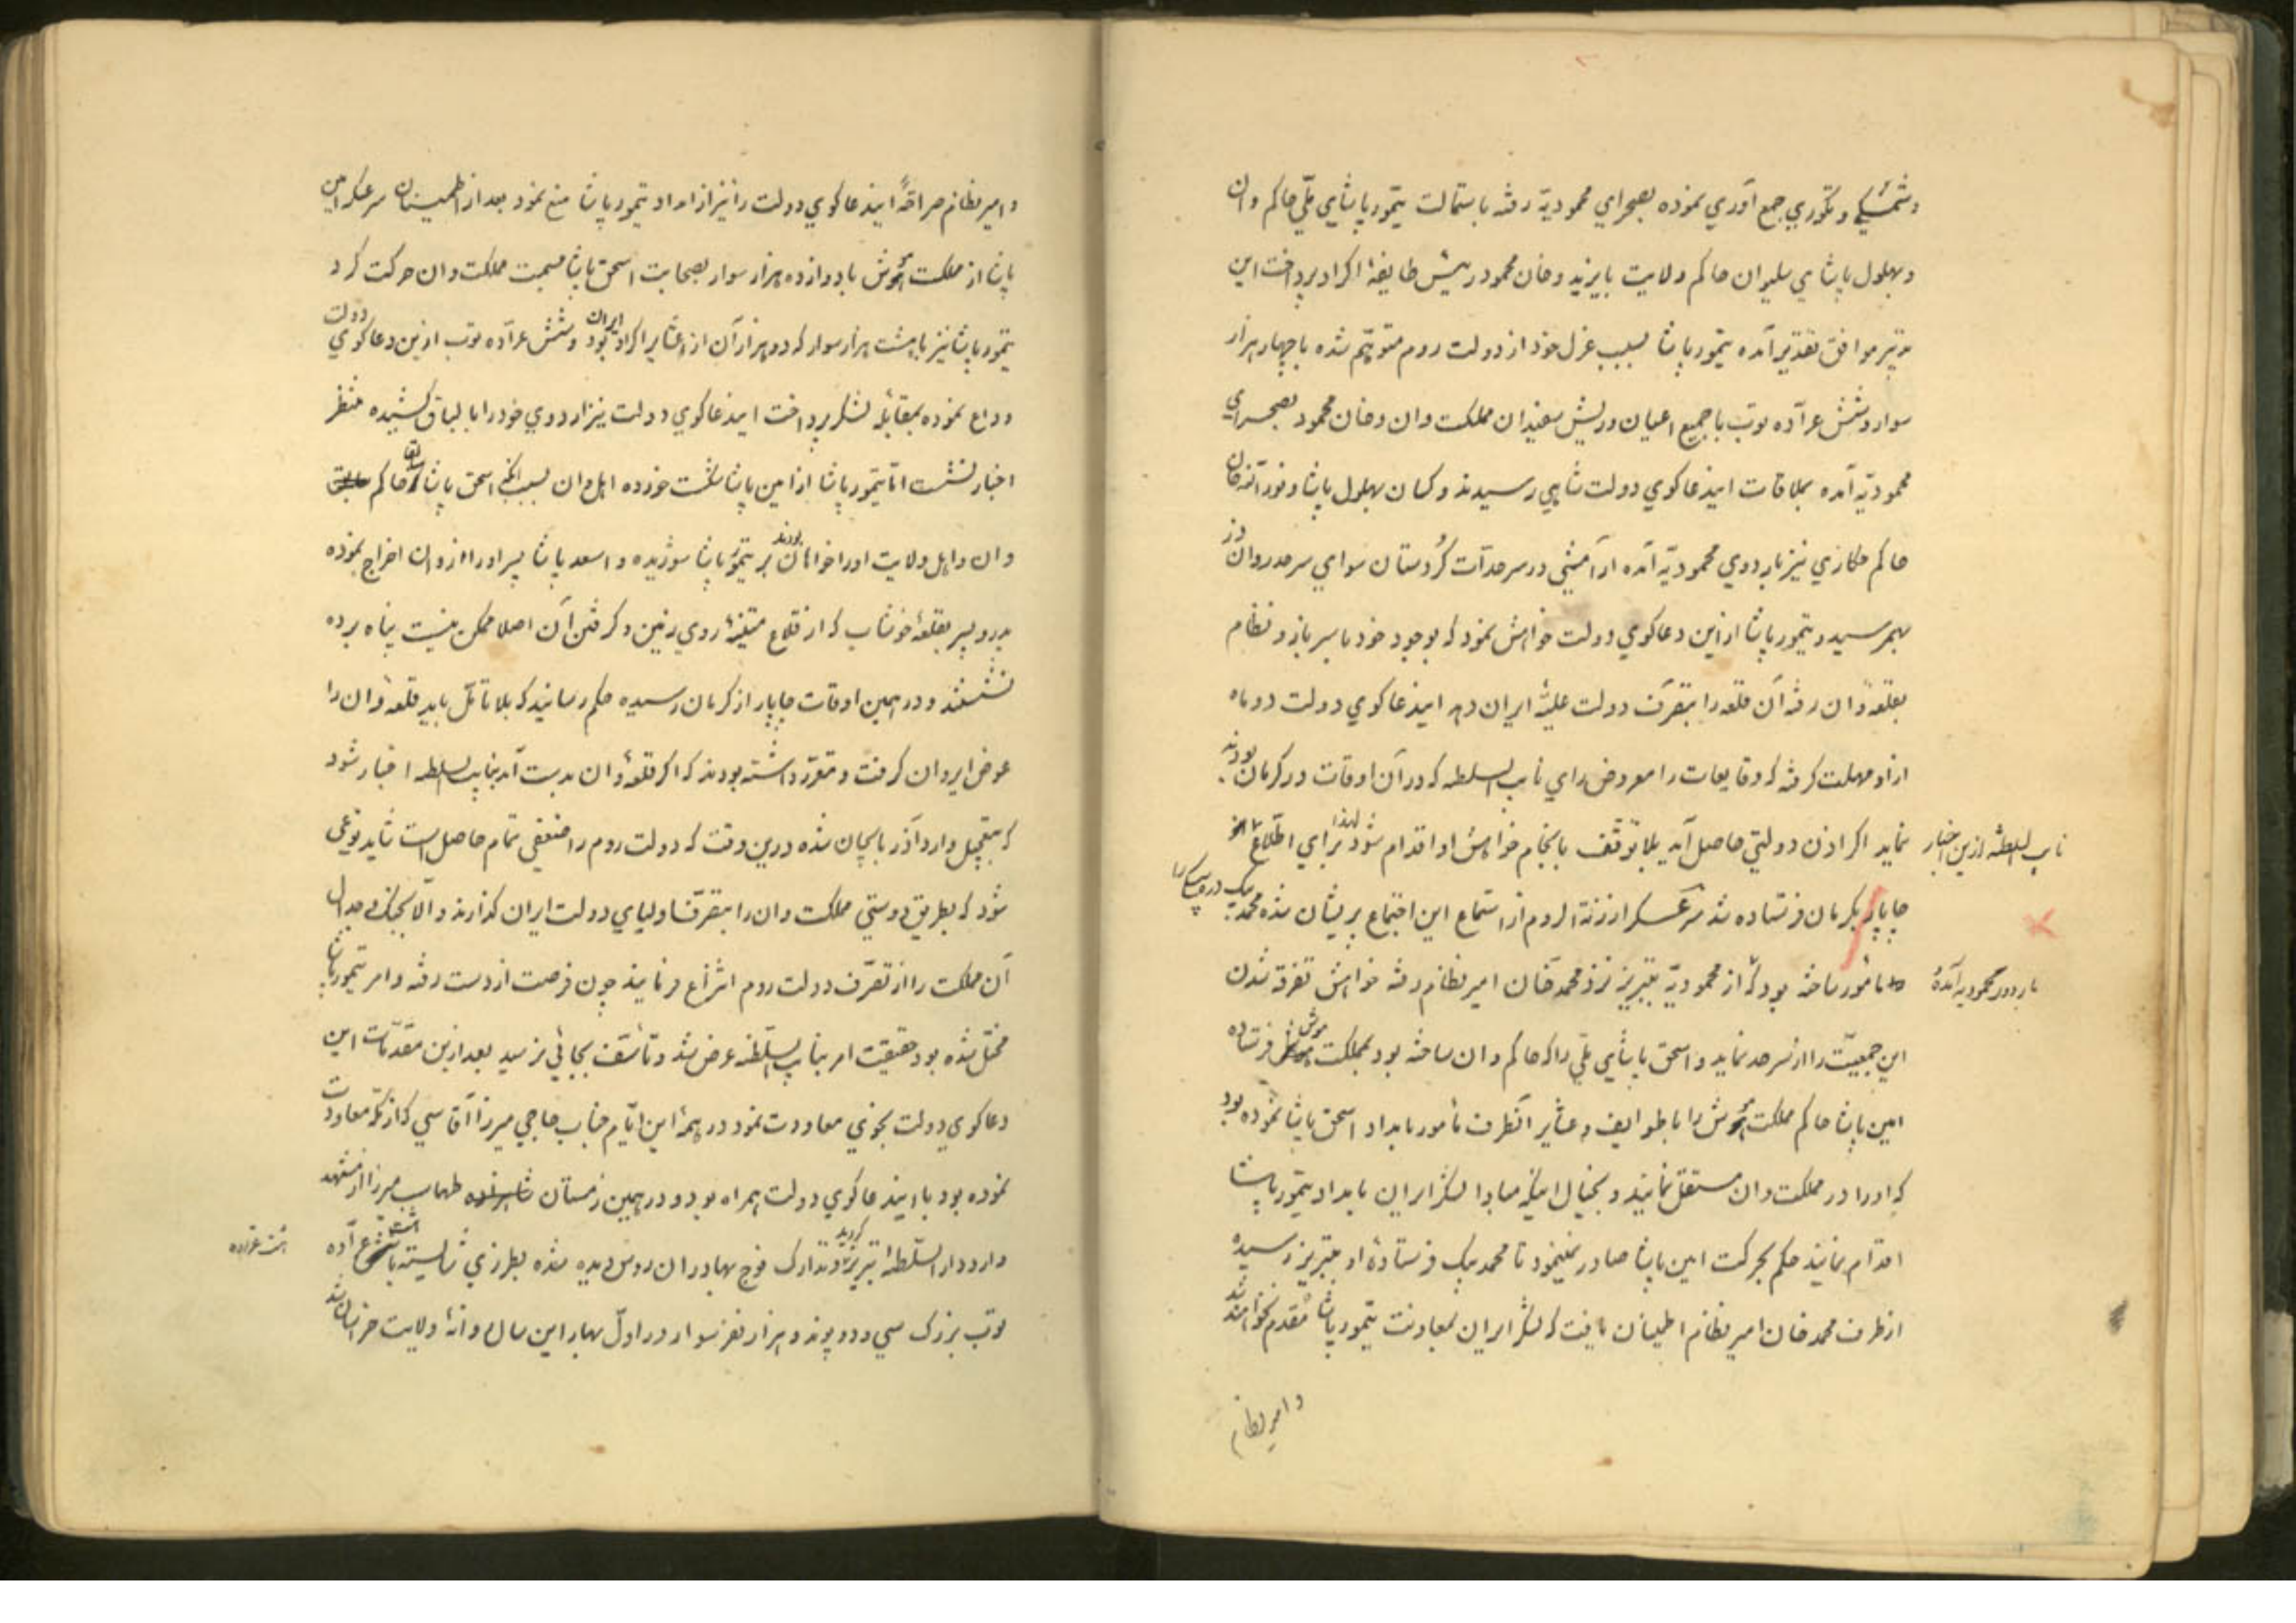 و شمسکی و تکوری جمع آوری نموده بصحرای محمودیّه رفته باستمالت تیمور پاشای ملّی حاکم وان
و بهلول پاشای سلیوان حاکم ولایت بایزید و خان محمود رئیس طایفهٔ اکراد پرداخت این
تدبیر موافق تقدیر آمده تیمور پاشا بسبب عزل خود از دولت روم متوهّم شده با چهار هزار
سوار و شش عرّاده توپ با جمیع اعیان و ریش سفیدان مملکت وان و خان محمود بصحرای
محمودیّه آمده بملاقات اینداعاکوی دولت شاهی رسیدند و کسان بهلول پاشا و نورالله خان
حاکم حکاری نیز باردوی محمودیّه آمده آرامشی در سرحدّات کُردستان سوای سرحد روان دز
بهمرسید و تیمور پاشا ازین دعاکوی دولت خواهش نمود که بوجود خود با سرباز و نظام
بقلعهٔ وان رفته آن قلعه را بتصرّف دولت علیّهٔ ایران دهد ایندعاکوی دولت دو ماه
ازو مهلت کرفته که وقایعات را معروض رای نایب السلطنه که در آن اوقات در کرمان بودند
نماید اکر اذن دولتی حاصل آید بلا توقّف بانجام خواهش او اقدام شود لهذا برای اطّلاع
نایب السلطنه ازین اخبار
چاپار بکرمان فرستاده شد سرعسکر ارزنة الروم از استماع این اجتماع پریشان شده محمد بیک
باردوی محمودیه آمده
مأمور ساخته بود که از محمودیّه بتبریز نزد محمد خان امیر نظام رفته خواهش تفرقه شدن
این جمعیّت را از سرحد نماید و اسحق پاشای ملّی را که حاکم وان ساخته بود بمملکت موش فرستاده
امین پاشا حاکم مملکت موش را با طوایف و عشایر آنطرف مأمور بامداد اسحق پاشا نموده بود
که او را در مملکت وان مستقل نمایند و بخیال اینکه مبادا لشکر ایران بامداد تیمور پاشا
اقدام نمایند حکم بحرکت امین پاشا صادر نمینمود تا محمد بیک فرستادهٔ او بتبریز رسیده
از طرف محمد خان امیر نظام اطمینان یافت که لشکر ایران بمعاونت تیمور پاشا مقدم نخواهند شد
و امیر نظام
و امیر نظام صراحةً ایندعاکوی دولت را نیز از امداد تیمور پاشا منع نمود بعد از اطمینان سرعسکر امین
پاشا از مملکت موش با دوازده هزار سوار بصحابت اسحق پاشا بسمت مملکت وان حرکت کرد
تیمور پاشا نیز با هشت هزار سوار که دو هزار آن از عشایر اکراد ایران بود و شش عرّاده توپ ازین دعاکوی دولت
وداع نموده بمقابلهٔ لشکر پرداخت ایندعاکوی دولت نیز اردوی خود را با لباق کشیده منتظر
اخبار نشست امّا تیمور پاشا از امین پاشا شکست خورده اهل وان بسبب آنکه اسحق پاشا سابقا حاکم
وان و اهل ولایت او را خواهان بودند بر تیمور پاشا شوریده و اسعد پاشا پسر او را از وان اخراج نموده
پدر و پسر بقلعهٔ خوشاب که از قلاع متینهٔ روی زمین و کرفتن آن اصلا ممکن نیست پناه برده
نشستند و در همین اوقات چاپار از کرمان رسیده حکم رسانید که بلا تأمّل باید قلعهٔ وان را
عوض ایروان کرفت و مقرّر داشته بودند که اکر قلعهٔ وان بدست آید بنایب السلطنه اخبار شود
که بتعجیل وارد آذربایجان شده درین وقت که دولت روم را ضعفی تمام حاصل است شاید نوعی
شود که بطریق دوستی مملکت وان را بتصرّف اولیای دولت ایران کذارند و الّا بجنک و جدال
آن مملکت را از تصرّف دولت روم انتزاع فرمایند چون فرصت از دست رفته و امر تیمور پاشا
مختل شده بود حقیقت امر بنایب السلطنه عرض شد و تأسّف بجائی نرسید بعد ازین مقدّمات این
دعاکوی دولت بخوی معاودت نمود در همهٔ این ایّام جناب حاجی میرزا آقاسی که از مکّه معاودت
نموده بود با ایندعاکوی دولت همراه بود و در همین زمستان شاهزاده طهماسب میرزا از مشهد
وارد دار السلطنهٔ تبریز کردید و تدارک فوج بهادران روس دیده شده بطرزی شایسته با هشت عرّاده
هشت عرّاده
توپ بزرک سی و دو پوند و هزار نفر سوار در اوّل بهار این سال روانهٔ ولایت خراسان شد